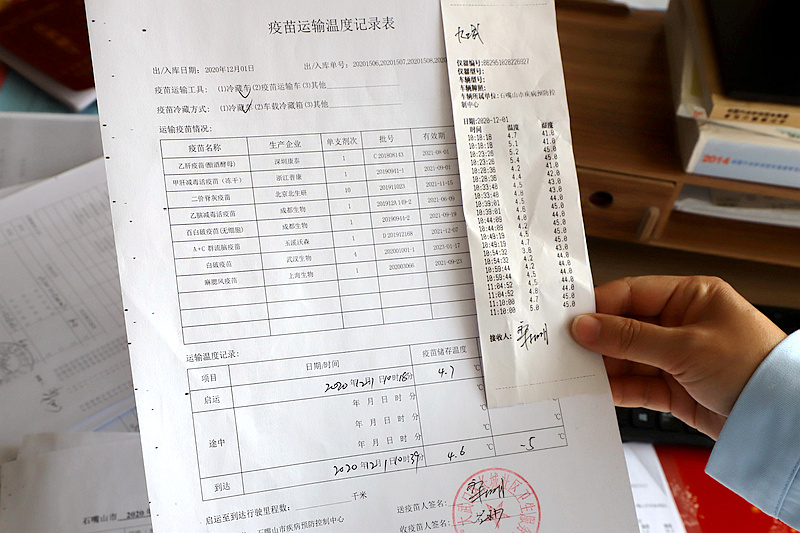 疫苗运输温度记录表
出/入库日期: 2020年12月01日 出/入库单号: 20201506,20201507,20201508,
疫苗运输工具: (1)冷藏车(2)疫苗运输车(3)其他
疫苗冷藏方式: (1)冷藏车(2)车载冷藏箱(3)其他
运输疫苗情况:
疫苗名称 生产企业 单支剂次 批号 有效期
乙肝疫苗(酿酒酵母) 深圳康泰 1 C201908143 2021-08-03
甲肝减毒活疫苗(冻干) 浙江普康 1 20190941-1 2021-09-01
二价脊灰疫苗 北京北生研 10 201911023 2021-11-15
乙脑减毒活疫苗 成都生物 1 2021-06-08
百白破疫苗(无细胞) 成都生物 1 20190941-2 2021-09-19
A+C群流脑疫苗 玉溪沃森 1 D201912168 2021-12-07
白破疫苗 武汉生物 4 202001001-1 2023-01-17
麻腮风疫苗 上海生物 1 202003066 2021-09-23
运输温度记录:
项目 日期/时间 疫苗储存温度
启运 2020年12月1日10时18分 4.7 ℃
途中 年 月 日 时 分 ℃
年 月 日 时 分 ℃
年 月 日 时 分 ℃
到达 2020年12月1日10时39分 4.6 ℃ -5 ℃
启运至到达行驶里程数: 千米
送疫苗人签名:
石嘴山市疾病预防控制中心
收疫苗人签名:
仪器编号:
仪器型号:
车辆型号:
车辆牌照:
车辆所属单位:石嘴山市疾病预防控
制中心
日期:2020-12-01
时间 温度 湿度
10:18:18 4.7 41.0
10:18:18 5.1 45.0
10:23:28 5.2 45.0
10:23:28 5.4 45.0
10:28:36 4.2 41.0
10:28:36 4.4 42.0
10:33:48 4.5 43.0
10:33:48 4.8 43.0
10:39:01 4.5 44.0
10:39:01 4.6 45.0
10:44:09 4.0 44.0
10:44:09 4.2 45.0
10:49:19 4.5 45.0
10:49:19 4.7 45.0
10:54:32 3.8 43.0
10:54:32 4.2 44.0
10:59:44 4.5 44.0
10:59:44 4.5 44.0
11:04:52 4.8 44.0
11:04:52 4.8 44.0
11:10:00 4.7 45.0
11:10:00 5.0 45.0
接收人:
2014
石嘴山市 2020